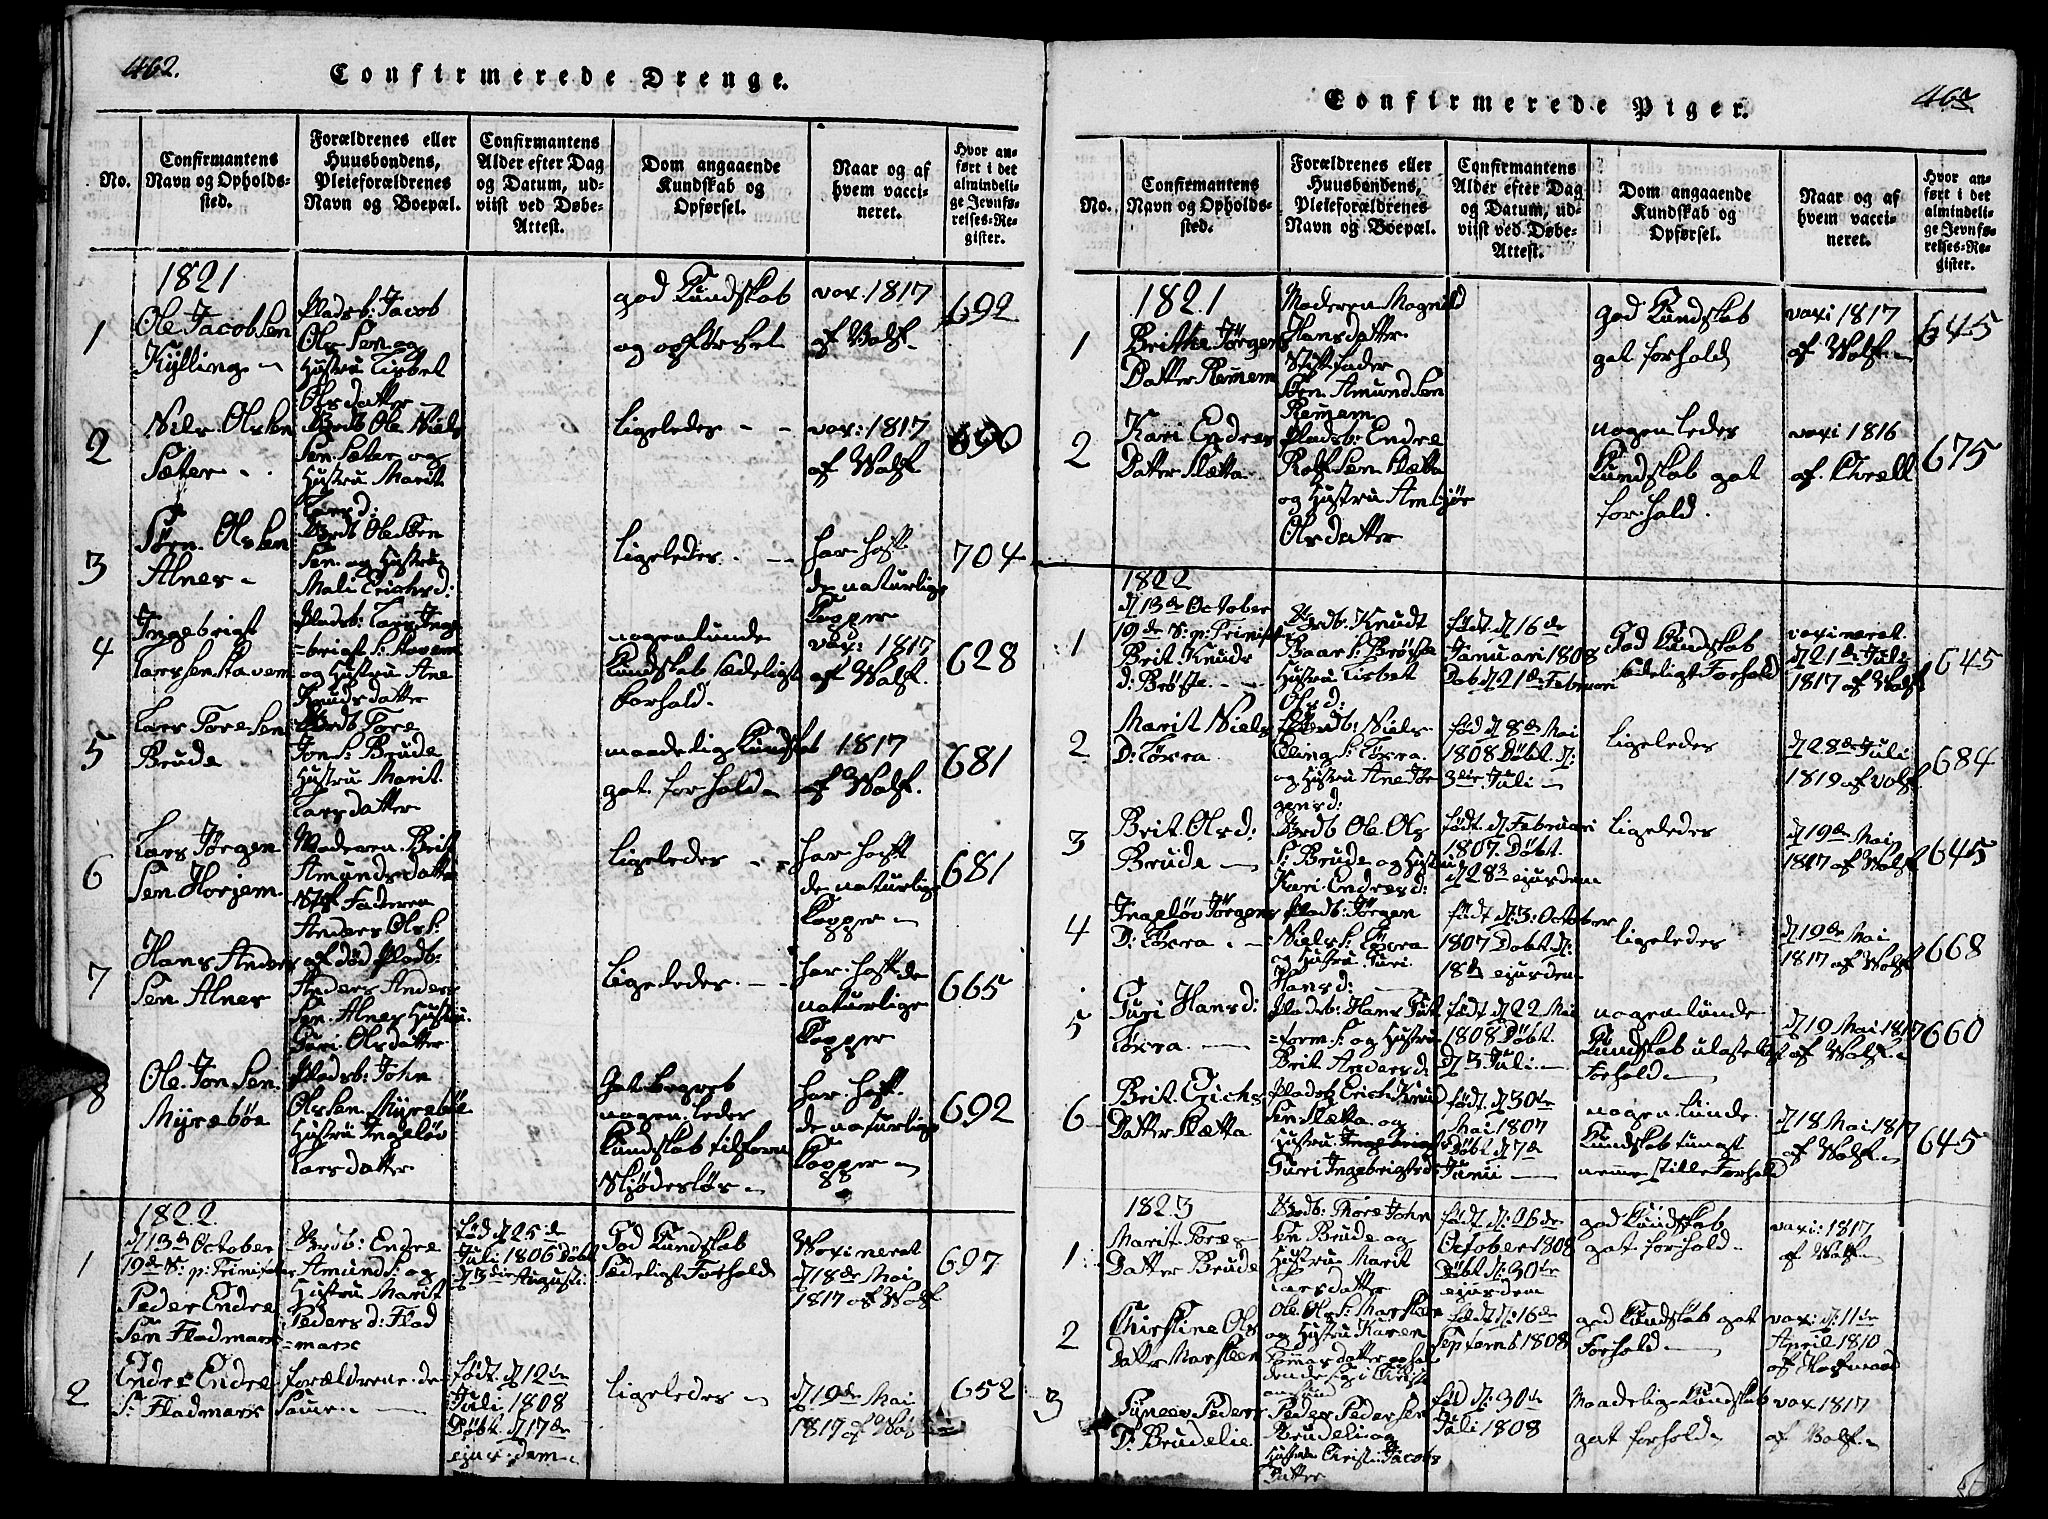 462.
Confirmerede Drenge.
No.
Confirmantens
Navn og Opholds-
sted.
Forældrenes eller
Huusbondens,
Pleieforældrenes
Navn og Boepæl.
Confirmantens
Alder efter Dag
og Datum, ud-
viist ved Døbe-
Attest.
Dom angaaende
Kundskab og
Opførsel.
Naar og af
hvem vacci-
neret.
Hvor an-
ført i det
almindeli-
ge Jevnfø-
relses-Re-
gister.
1821
1
Ole Jacobsen
Kylling
Pladsb: Jacob
Olssen og
Hustru Lisbet
Olsdatter
god Kundskab
og opførsel
vax: 1817
af Wolf
692
2
Niels Olssen
Sæter
Brdb Ole Niels
Sen Sæter og
Hustru Marit
Larsd:
ligeledes
vax: 1817
af Wolf
690
3
Søren Olssen
Alnes
Brdb Ole Sen
Sen og Hustru
Mali Erichsd:
ligeledes
har haft
de naturlige
Kopper
704
4
Ingebrigt
Larssen Stavem
Pladsb: Lars Inge
=brigt S: Stavem
og Hustru Ane
Knudsdatter
nogenlunde
Kundskab sædeligt
forhold.
vax: 1817
af Wolf.
628
5
Lars Toresen
Brude
Brdb Tore
Jon S: Brude
Hustru Marit
Larsdatter
maadelig Kundskab
gat forhold
1817
af Wolf.
681
6
Lars Jørgen
Sen Horjem
Moderen Brit
Amundsdatter
Stif Faderen
Anders Ols S:
ligeledes
har haft
de naturlige
Kopper
681
7
Hans Anders
Sen Alnes
af død Pladb:
Anders Anders
Sen Alnes Hustru
Guri Olsdatter
ligeledes
har haft de
naturlige
Kopper
665
8
Ole Jonsen
Myrebøe
Pladsb: John
Olssen Myrebøe
Hustru Ingeløv
Larsdatter
Gat begreb
nogenledes
Kundskab tilforn
Skjødesløs
har haft
de naturlige
Kopper
692
1822.
1
d 13de October
19de S: p: Trinitatis
Peder Endre
Sen Fladmark
Brdb: Endre
Amunds: og
Hustru Marit
Peders d: Flad
=mark
fød d 25de
Juli 1806 Døbt
d 3die Augusti
God Kundskab
Sædeligt Forhold
Vaxineret
d 18de Mai
1817 af Wolf
697
2
Endre Endre
S: Fladmark
forældrene de
samme
født d 12te
Juli 1808
Døbt d 17de
ejusdem
ligeledes
d 19de Mai
1817 af Wolf
652
Confirmerede Piger.
No.
Confirmantens
Navn og Opholds-
sted.
Forældrenes eller
Huusbondens,
Pleieforældrenes
Navn og Boepæl.
Confirmantens
Alder efter Dag
og Datum, ud-
viist ved Døbe-
Attest.
Dom angaaende
Kundskab og
Opførsel.
Naar og af
hvem vacci-
neret.
Hvor an-
ført i det
almindeli-
ge Jevnfø-
relses-Re-
gister.
1821
1
Brithe Jørgens
Datter Remem
Moderen Magnild
Hansdatter
Stiffader
Sen Amundsen
Remem
God Kundskab
gat forhold
vaxi 1817
af Wolf
645
2
Kari Endres
Datter Slætta
Pladsb: Endre
Rolfsen Slætta
og Hustru Ambjør
Olsdatter
nogenledes
Kundskab gat
forhold.
vaxi 1816
675
1822
d 13de October
19de S: p: Trinitatis
1
Brit Knuds
d: Brøste
Brdb: Knudt
Baar S: Brøste
Hustru Lisbet
Olsd:
født d 16de
Januari 1808
Døb d 21de Februari
God Kundskab
sædeligt Forhold
vaxineret
d 21de Juli
1817 af Wolf
645
2
Marit Niels
D: Løxra
Brdb: Niels
Elling S: Løxra
og Hustru Ane Jør
gensd:
fød d 8de Mai
1808 Døbt d:
3die Juli
ligeledes
d 28de Juli
1819 af Wolf
684
3
Brit Olsd:
Brude
Brdb Ole Ols
S: Brude og Hustru
Kari Endresd:
født d Februari
1807. Døbt
d 28de ejusdem
ligeledes
d 19de Mai
1817 af Wolf
645
4
Ingeløv Jørgens
D: Løxra
Pladb: Jørgen
Niels S: Løxra
og Hustru Guri
Hansd:
født d 3: October
1807 Døbt d:
18de ejusdem
ligeledes
d 19de Mai
1817 af Wolf
668
5
Guri Hansd:
Løxra
Pladsb: Hans Gut
=form S: og Hustru
Brit Andersd:
født d 22 Mai
1808 Døbt
d 3 Juli
nogenlunde
Kundskab ulasteligt
Forhold
d 19 Mai 1817
af Wolf
660
6
Brit Erichs
Datter Slætta
Pladsb Erich Knud
Sen Slætta og
Hustru
Guri Ingebrigtsd
født d 30te
Mai 1807
Døbt d 7de
Junii
nogenlunde
Kundskab tungt
nemme stille Forhold
d 18 Mai 1817
af Wolf
645
1823
1
Marit Tores
Datter Brude
Brdb: Thore John
Sen Brude og
Hustru Marit
Larsdatter
født d: 26de
October 1808
Døbt d: 30te
ejusdem
god Kundskab
gat forhold
vaxi: 1817
af Wolf
2
Chirstine Ols
Datter Marsteen
Ole Ols S: Marsteen
og Hustru Karen
født d: 16de
Septemb 1808
god Kundskab gat
Forhold
vax: d: 11te
April 1810
3
Synnev Peders
D: Brudelie
Peder Pedersen
Brudeli og
Hustrue Christi: Jacobs
Datter
fød d: 30te
Juli 1808
Maadelig Kundskab
gat forhold
vax 1817
af Wolf